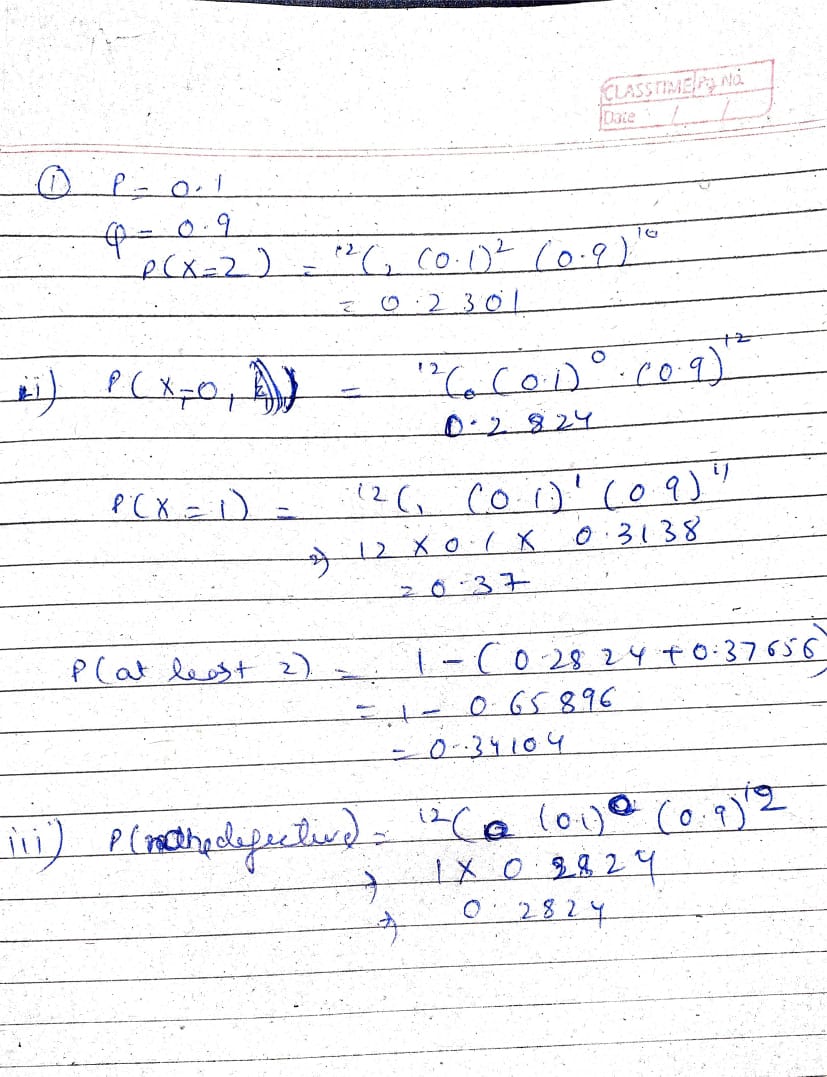 CLASSTIME Pg No.
Date / /
① P = 0.1
q = 0.9
P(X=2) = ¹²C₂ (0.1)² (0.9)¹⁰
= 0.2301
ii) P(X=0, = ¹²C₀ (0.1)⁰ · (0.9)¹²
0.2824
P(X=1) = ¹²C₁ (0.1)¹ (0.9)¹¹
⇒ 12 × 0.1 × 0.3138
= 0.37
P(at least 2) = 1 - (0.2824 + 0.37656)
= 1 - 0.65896
= 0.34104
iii) P( defective) = ¹²C₀ (0.1)⁰ (0.9)¹²
⇒ 1 × 0.2824
⇒ 0.2824